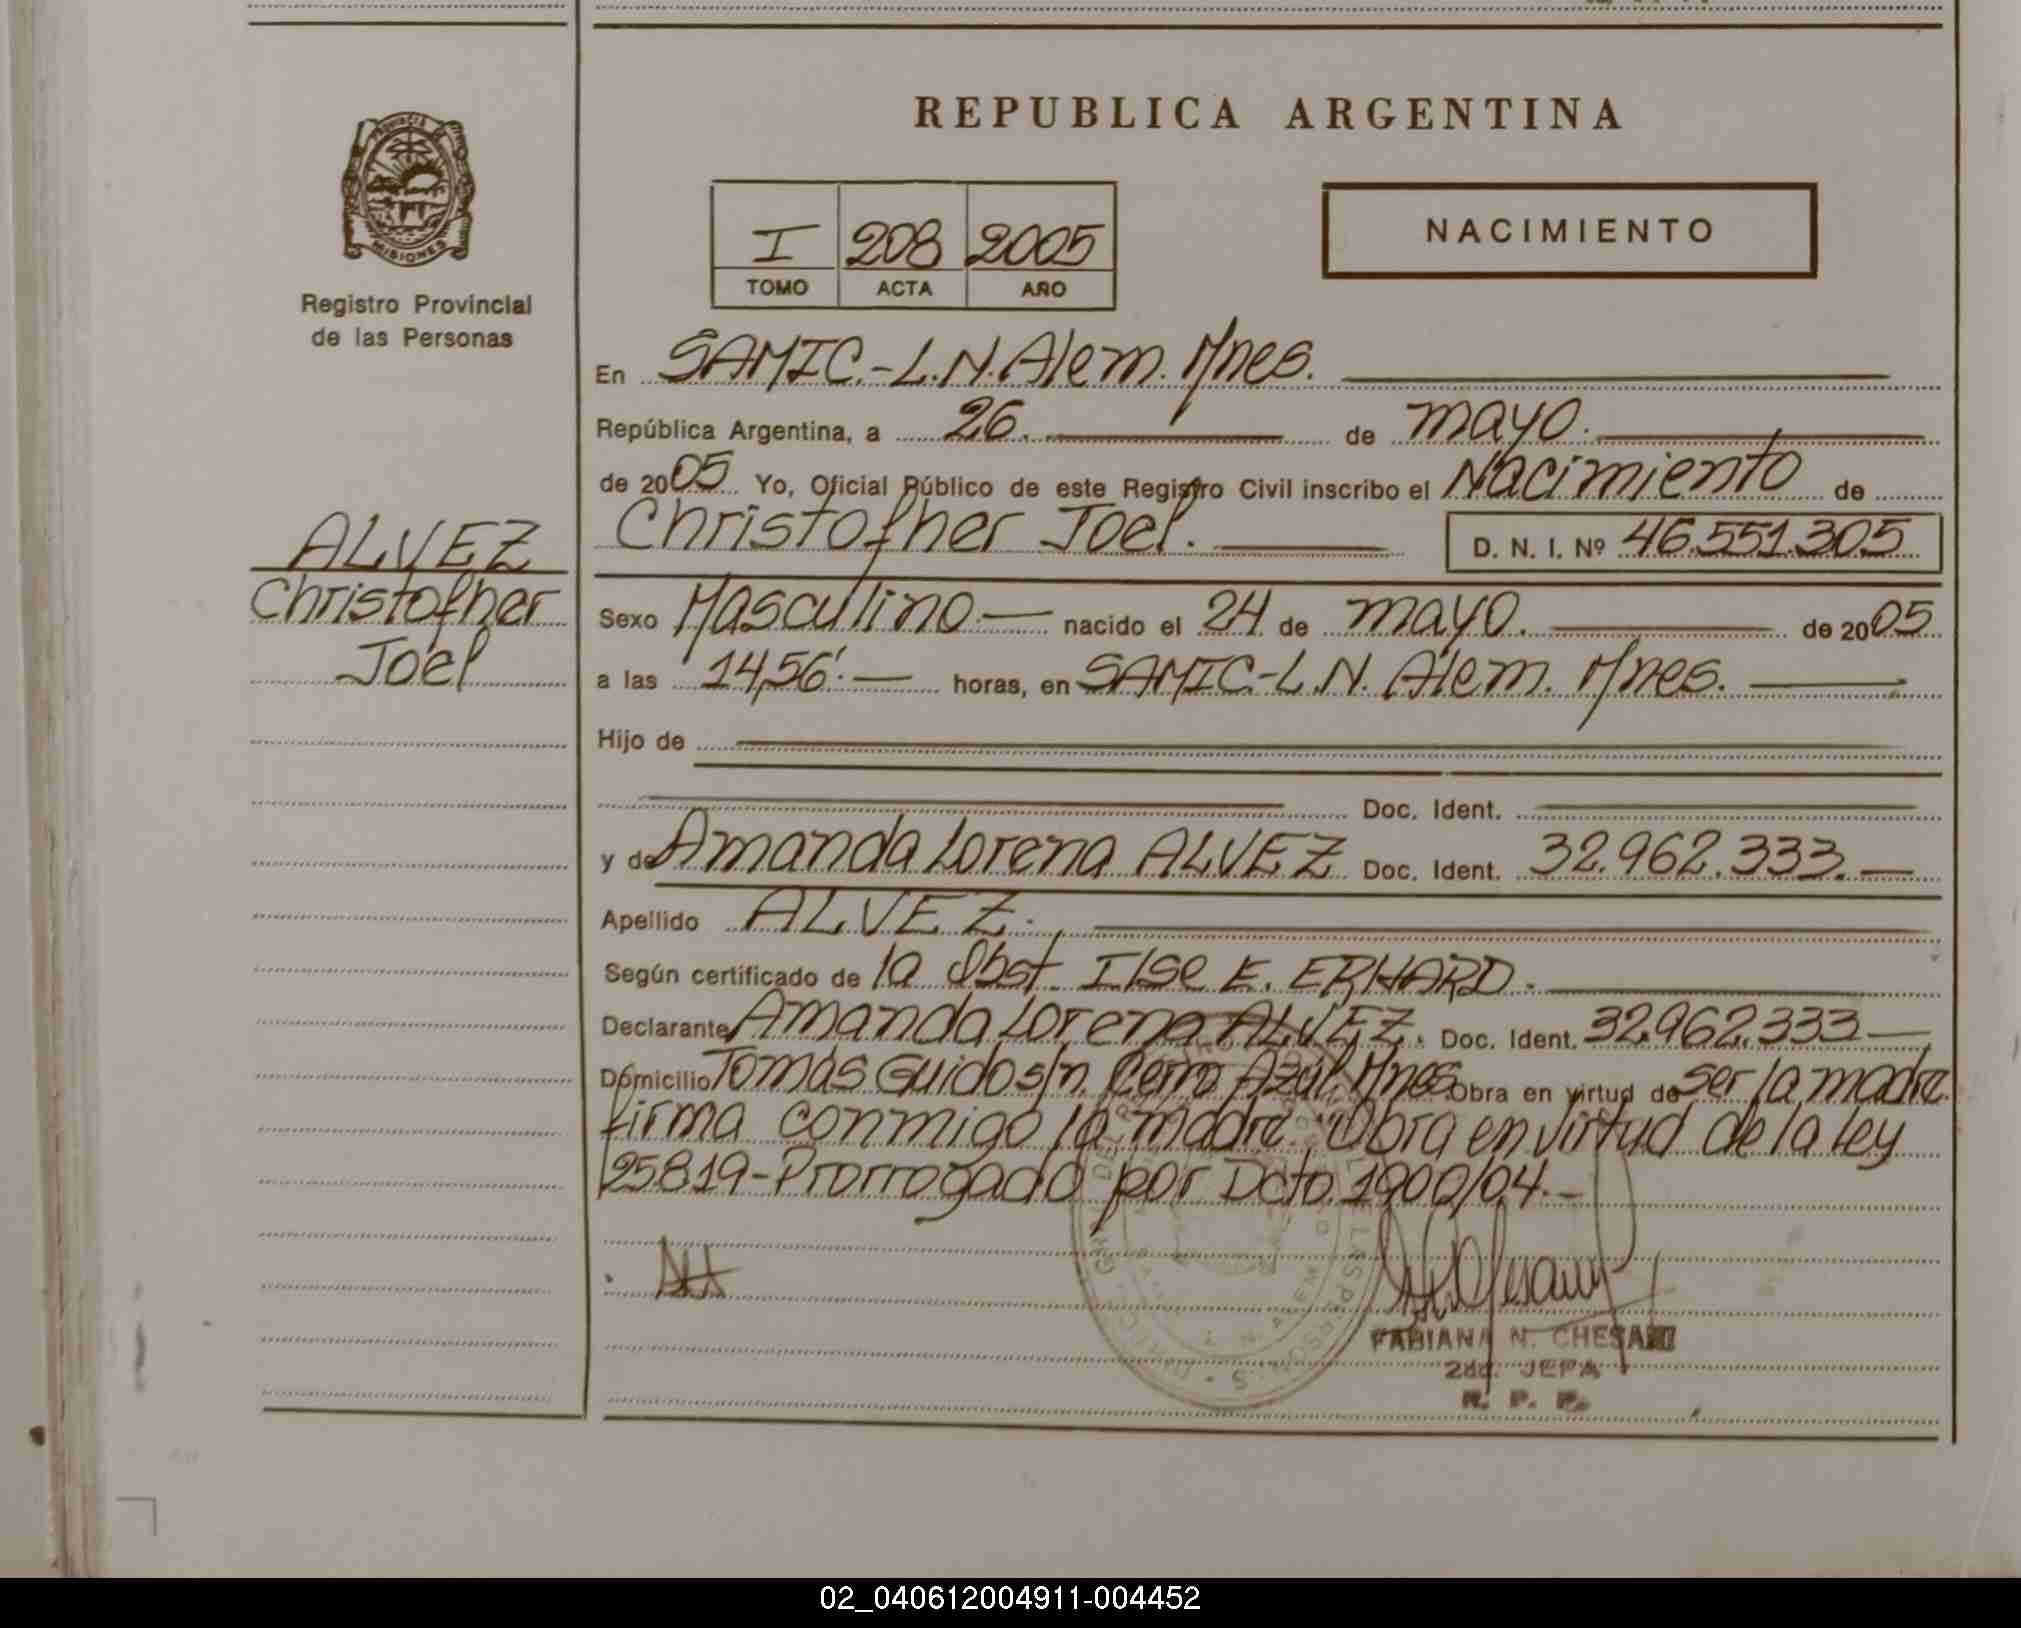 REPUBLICA ARGENTINA
PROVINCIA
MISIONES
Registro Provincial
de las Personas
I 208 2005
TOMO ACTA AÑO
NACIMIENTO
En SAMIC.-L.N.Alem. Mnes.
República Argentina, a 26. de mayo.
de 2005 Yo, Oficial Público de este Registro Civil inscribo el Nacimiento de
Christofher Joel. D. N. I. Nº 46.551.305
ALVEZ
Christofher
Joel
Sexo Masculino nacido el 24 de mayo. de 2005
a las 14,56'. horas, en SAMIC-L.N. Alem. Mnes.
Hijo de
Doc. Ident.
y de Amanda Lorena ALVEZ Doc. Ident. 32.962.333.
Apellido ALVEZ.
Según certificado de la Obst. Ilse E. ERHARD.
Declarante Amanda Lorena ALVEZ. Doc. Ident. 32.962.333
Domicilio Tomás Guido s/n. Cerro Azul. Mnes. Obra en virtud de ser la madre.
firma conmigo la madre. Obra en virtud de la Ley
25819-Prorrogado por Dcto. 1900/04.-
FABIANA N. CHESANI
2da. JEFA
R. P. P.
02_040612004911-004452